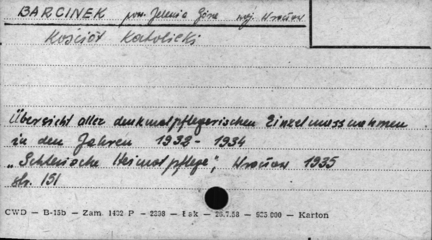 BARCINEK pow. Jelenia Góra woj. Wrocław
Kościół Katolicki
Übersicht aller denkmalpflegerischen Einzelmassnahmen
in den Jahren 1932 - 1934
„Schlesische Heimatpflege", Wrocław 1935
str. 151
CWD — B-15b — Zam. 1402 P — 2238 — Łak — 26.7.58 — 925 000 — Karton